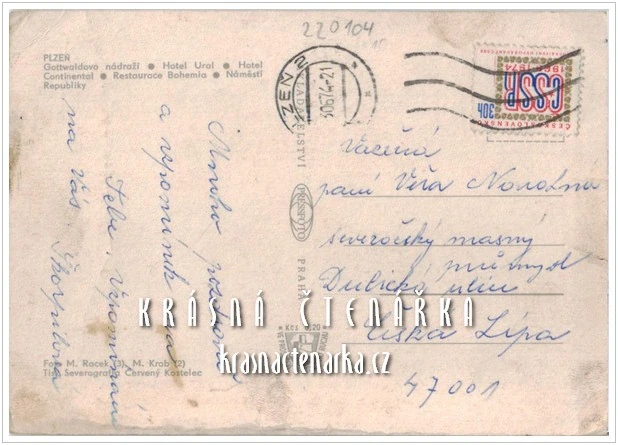 220104
PLZEŇ
Gottwaldovo nádraží • Hotel Ural • Hotel
Continental • Restaurace Bohemia • Náměstí
Republiky
PLZEŇ 2
30.6.74-21
ČESKOSLOVENSKO
1969 1974
ČSSR
30h
VYDAVATELSTVÍ
PRESSFOTO
PRAHA
Kčs 1,20
Mnoho pozdravů
a vzpomínek na
Tebe
na vás Škorpilova
Vážená
paní Věra Novotná
severočeský masný
průmysl
Dubická ulice
Česká Lípa
47001
KRÁSNÁ ČTENÁŘKA
krasnactenarka.cz
Foto M. Racek (3), M. Krob (2)
Tisk Severografie Červený Kostelec